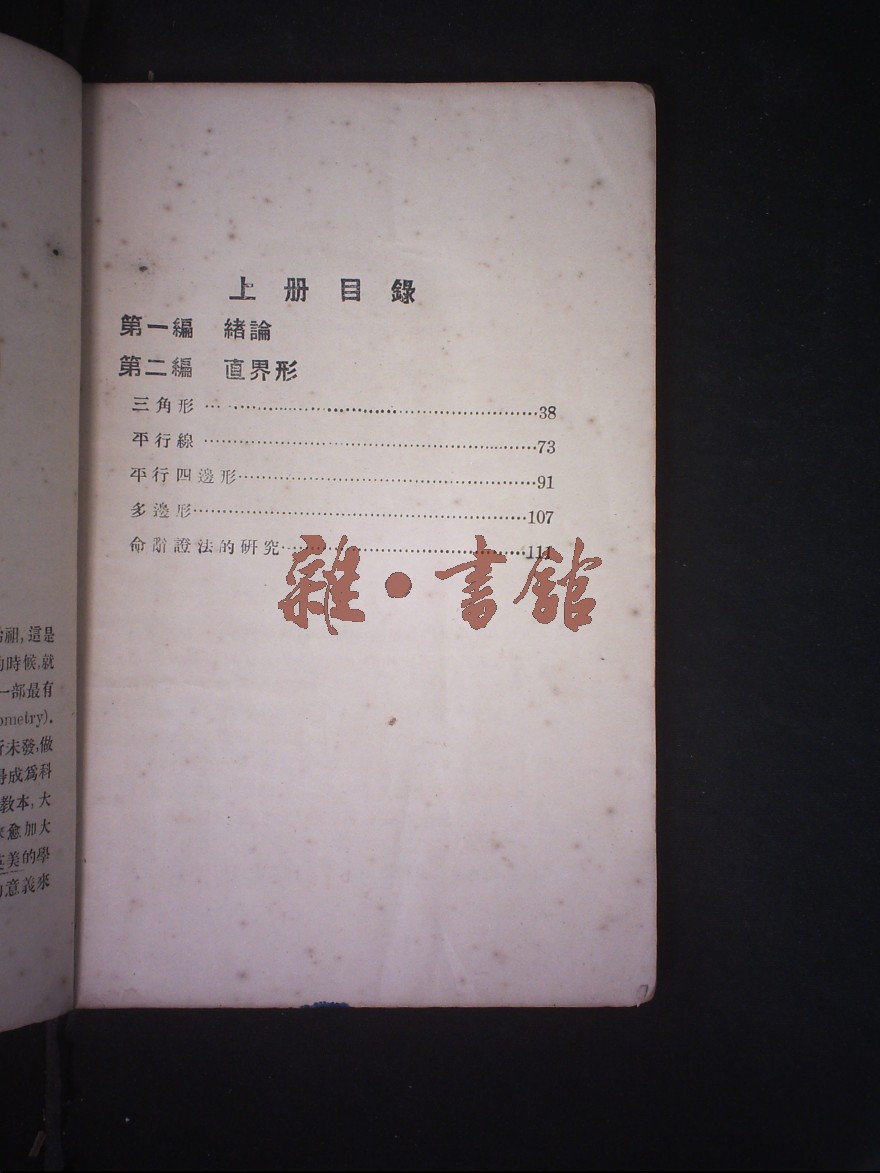 上册目錄
第一編 緒論
第二編 直界形
三角形………………………………38
平行線………………………………73
平行四邊形………………………………91
多邊形………………………………107
命題證法的研究………………………………111
雜·書館
祖,這是
時候,就
一部最有
ometry).
未發,做
成爲科
教本,大
愈加大
美的學
意義來